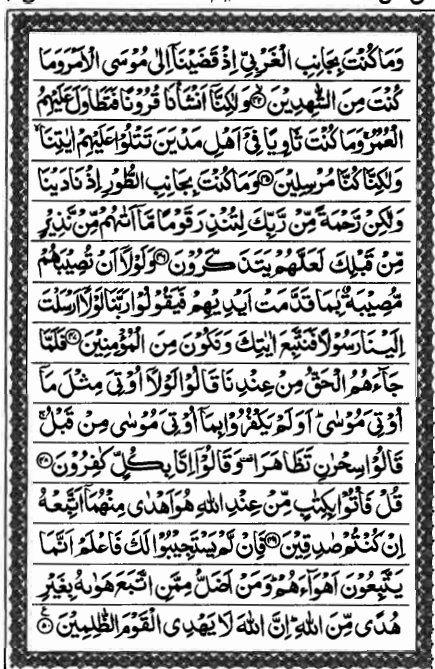 وَمَا كُنْتَ بِجَانِبِ الْغَرْبِيِّ اِذْ قَضَيْنَاۤ اِلٰى مُوْسَى الْاَمْرَ وَمَا
كُنْتَ مِنَ الشّٰهِدِيْنَ ﴿۴۴﴾ وَلٰكِنَّاۤ اَنْشَاْنَا قُرُوْنًا فَتَطَاوَلَ عَلَيْهِمُ
الْعُمُرُ ۚ وَمَا كُنْتَ ثَاوِيًا فِيْۤ اَهْلِ مَدْيَنَ تَتْلُوْا عَلَيْهِمْ اٰيٰتِنَا ۙ
وَلٰكِنَّا كُنَّا مُرْسِلِيْنَ ﴿۴۵﴾ وَمَا كُنْتَ بِجَانِبِ الطُّوْرِ اِذْ نَادَيْنَا
وَلٰكِنْ رَّحْمَةً مِّنْ رَّبِّكَ لِتُنْذِرَ قَوْمًا مَّاۤ اَتٰىهُمْ مِّنْ نَّذِيْرٍ
مِّنْ قَبْلِكَ لَعَلَّهُمْ يَتَذَكَّرُوْنَ ﴿۴۶﴾ وَلَوْلَاۤ اَنْ تُصِيْبَهُمْ
مُّصِيْبَةٌۢ بِمَا قَدَّمَتْ اَيْدِيْهِمْ فَيَقُوْلُوْا رَبَّنَا لَوْلَاۤ اَرْسَلْتَ
اِلَيْنَا رَسُوْلًا فَنَتَّبِعَ اٰيٰتِكَ وَنَكُوْنَ مِنَ الْمُؤْمِنِيْنَ ﴿۴۷﴾ فَلَمَّا
جَآءَهُمُ الْحَقُّ مِنْ عِنْدِنَا قَالُوْا لَوْلَاۤ اُوْتِيَ مِثْلَ مَاۤ
اُوْتِيَ مُوْسٰى ؕ اَوَلَمْ يَكْفُرُوْا بِمَاۤ اُوْتِيَ مُوْسٰى مِنْ قَبْلُ ۚ
قَالُوْا سِحْرٰنِ تَظَاهَرَا ۟ وَقَالُوْۤا اِنَّا بِكُلٍّ كٰفِرُوْنَ ﴿۴۸﴾
قُلْ فَاْتُوْا بِكِتٰبٍ مِّنْ عِنْدِ اللّٰهِ هُوَ اَهْدٰى مِنْهُمَاۤ اَتَّبِعْهُ
اِنْ كُنْتُمْ صٰدِقِيْنَ ﴿۴۹﴾ فَاِنْ لَّمْ يَسْتَجِيْبُوْا لَكَ فَاعْلَمْ اَنَّمَا
يَتَّبِعُوْنَ اَهْوَآءَهُمْ ؕ وَمَنْ اَضَلُّ مِمَّنِ اتَّبَعَ هَوٰىهُ بِغَيْرِ
هُدًى مِّنَ اللّٰهِ ؕ اِنَّ اللّٰهَ لَا يَهْدِى الْقَوْمَ الظّٰلِمِيْنَ ﴿۵۰﴾